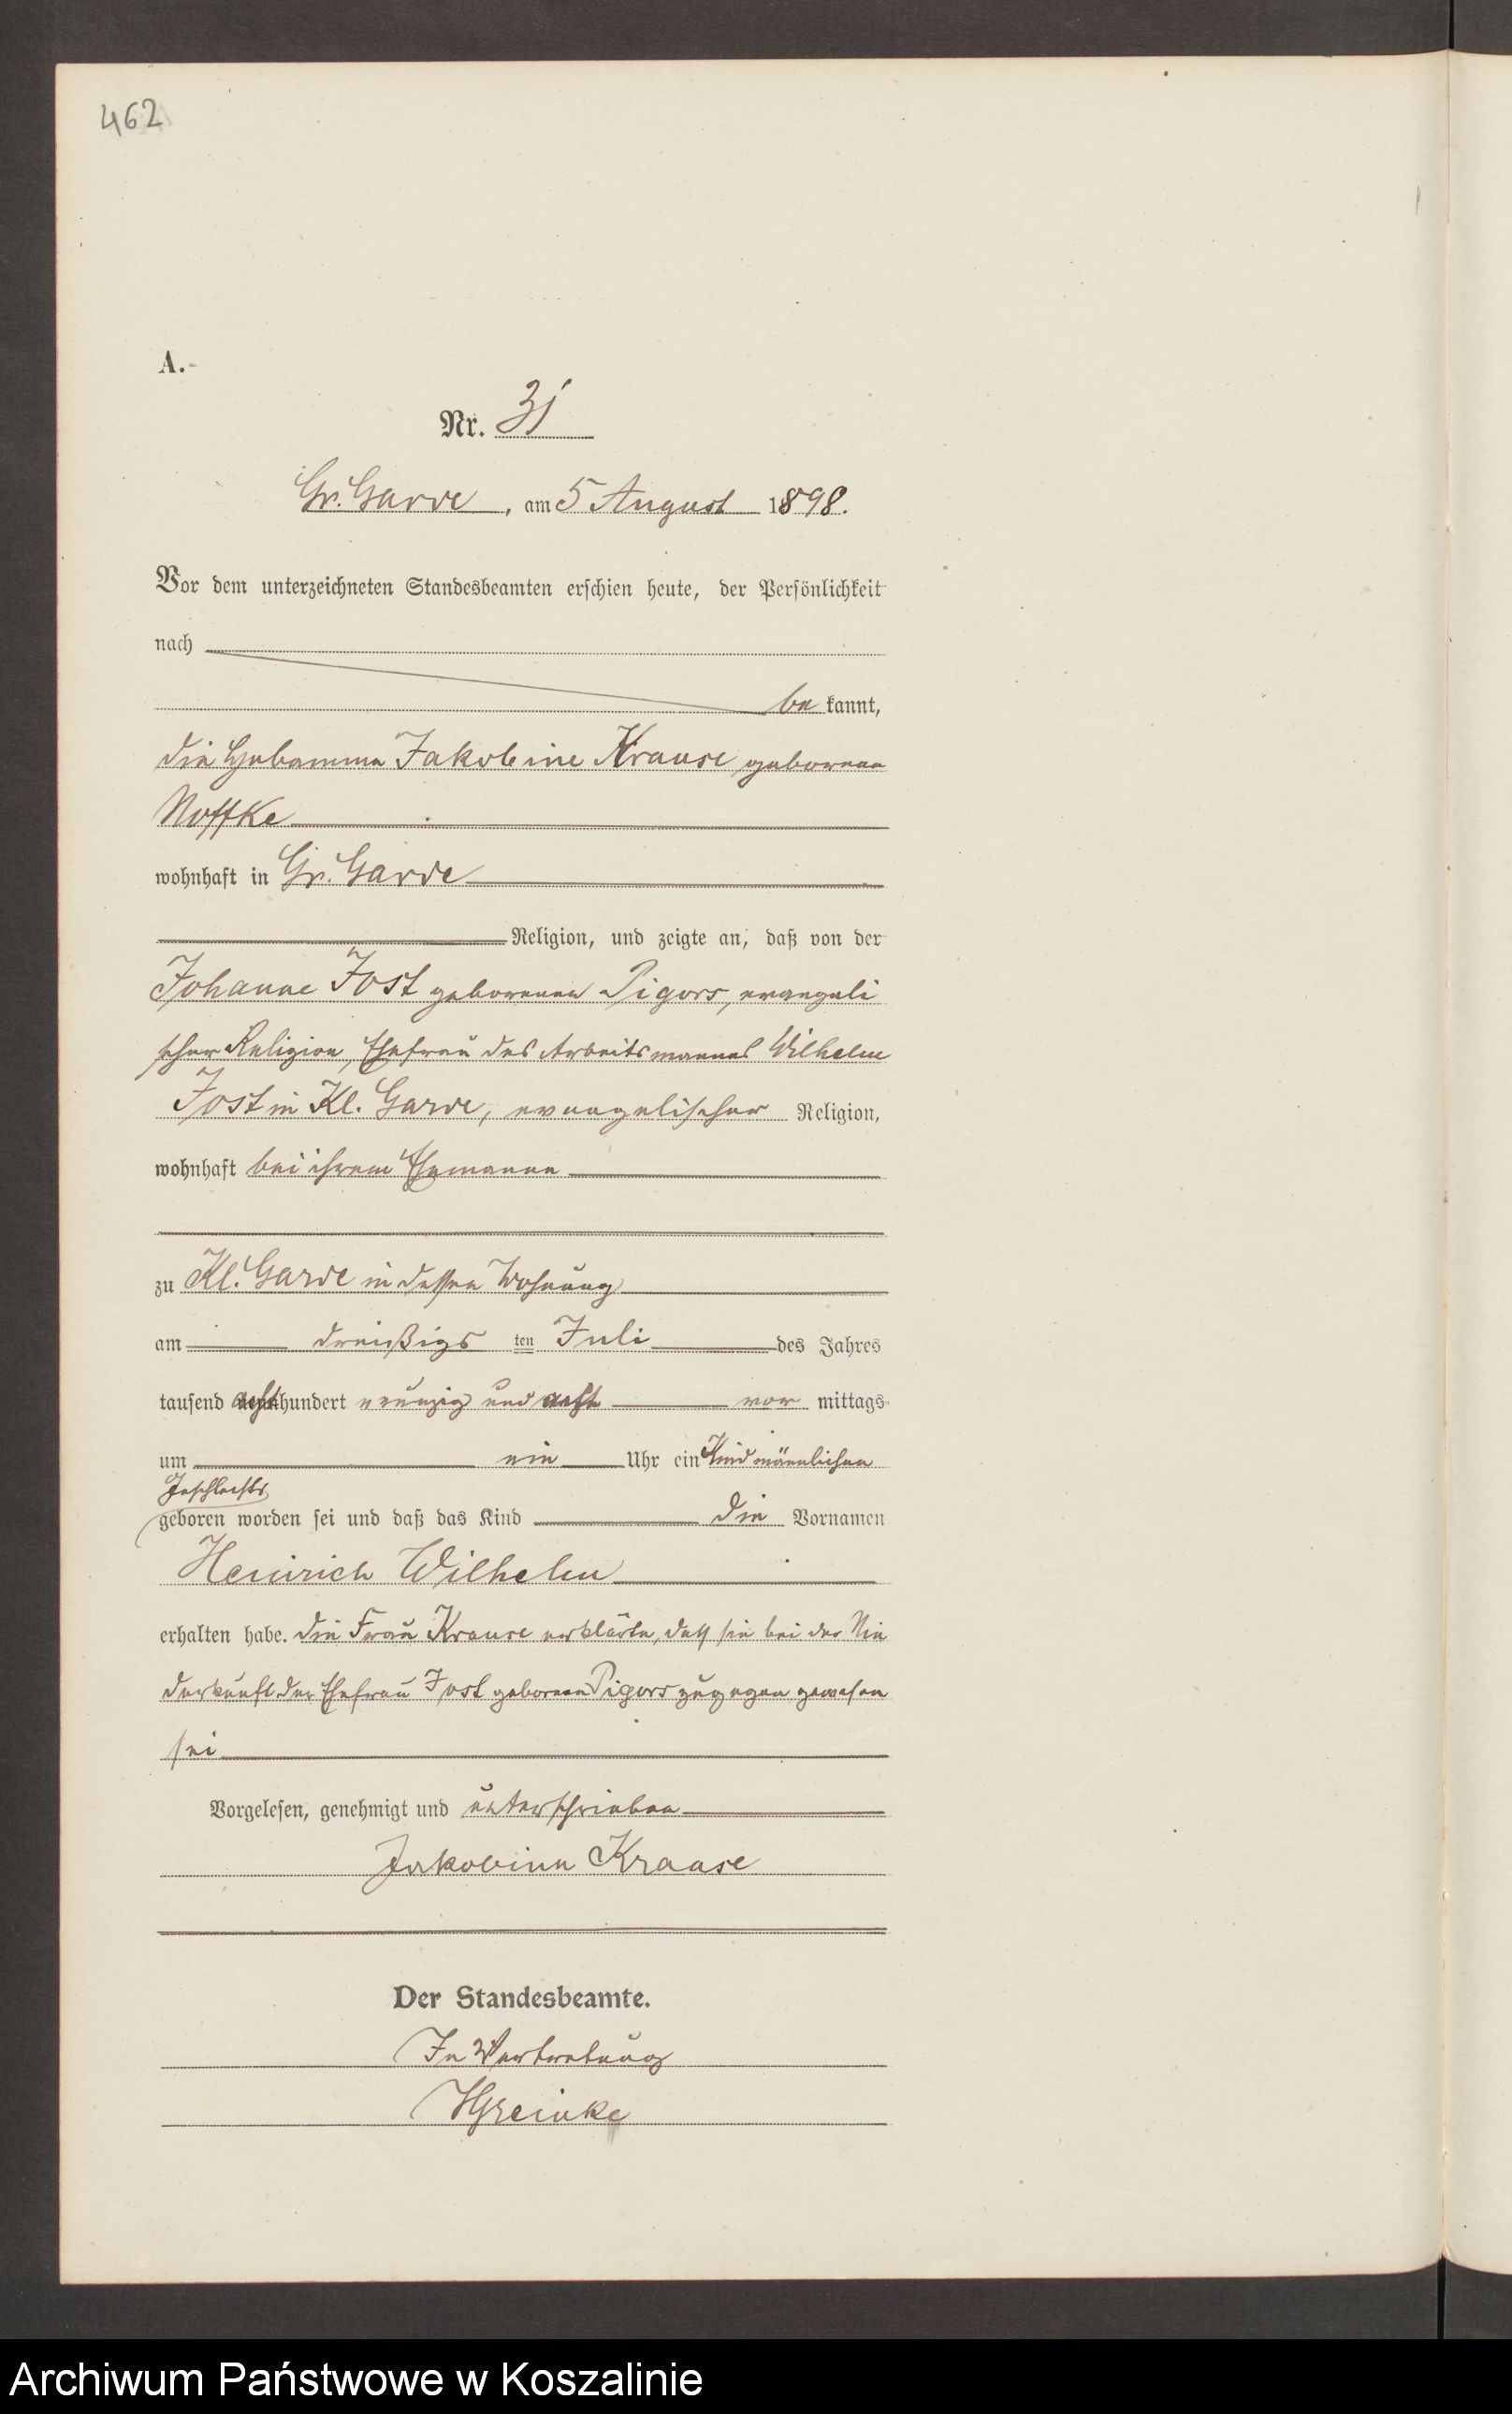 462
A.
Nr. 31
Gr. Garde, am 5 August 1898.
Vor dem unterzeichneten Standesbeamten erschien heute, der Persönlichkeit
nach
be kannt,
die Hebamme Jakobine Krause geborene
Noffke
wohnhaft in Gr. Garde
Religion, und zeigte an, daß von der
Johanne Jost geborenen Pigors, evangeli
scher Religion, Ehefrau des Arbeitsmannes Wilhelm
Jost in Kl. Garde, evangelischer Religion,
wohnhaft bei ihrem Ehemanne
zu Kl. Garde in dessen Wohnung
am dreißigs ten Juli des Jahres
tausend achthundert neunzig und acht vor mittags
um ein Uhr ein Kind männlichen
Geschlechts
geboren worden sei und daß das Kind die Vornamen
Heinrich Wilhelm
erhalten habe. Die Frau Krause erklärte, daß sie bei der Nie
derkunft der Ehefrau Jost geborene Pigors zugegen gewesen
sei
Vorgelesen, genehmigt und unterschrieben
Jakobine Krause
Der Standesbeamte.
In Vertretung
Archiwum Państwowe w Koszalinie